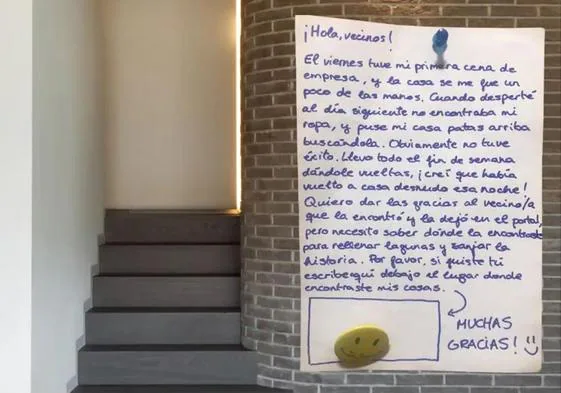 ¡Hola, vecinos!
El viernes tuve mi primera cena de
empresa, y la cosa se me fue un
poco de las manos. Cuando desperté
al día siguiente no encontraba mi
ropa, y puse mi casa patas arriba
buscándola. Obviamente no tuve
éxito. Llevo todo el fin de semana
dándole vueltas, ¡creí que había
vuelto a casa desnudo esa noche!
Quiero dar las gracias al vecino/a
que la encontró y la dejó en el portal,
pero necesito saber dónde la encontraste
para rellenar lagunas y zanjar la
historia. Por favor, si fuiste tú
escribe aquí debajo el lugar donde
encontraste mis cosas.
MUCHAS
GRACIAS! :)